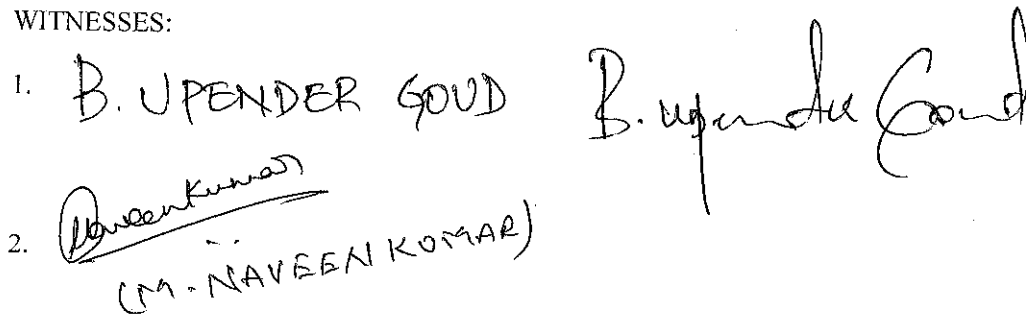 WITNESSES:
1. B. UPENDER GOUD B. Upender Goud
Naveen Kumar
2.
(M. NAVEEN KUMAR)